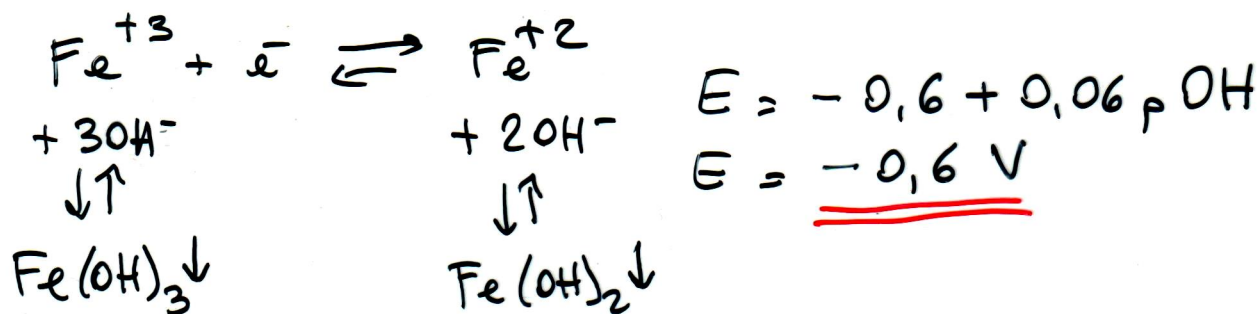 Fe+3 + e- ⇌ Fe+2
+ 3OH- + 2OH-
↓↑ ↓↑
Fe(OH)3↓ Fe(OH)2↓
E = - 0,6 + 0,06 pOH
E = - 0,6 V